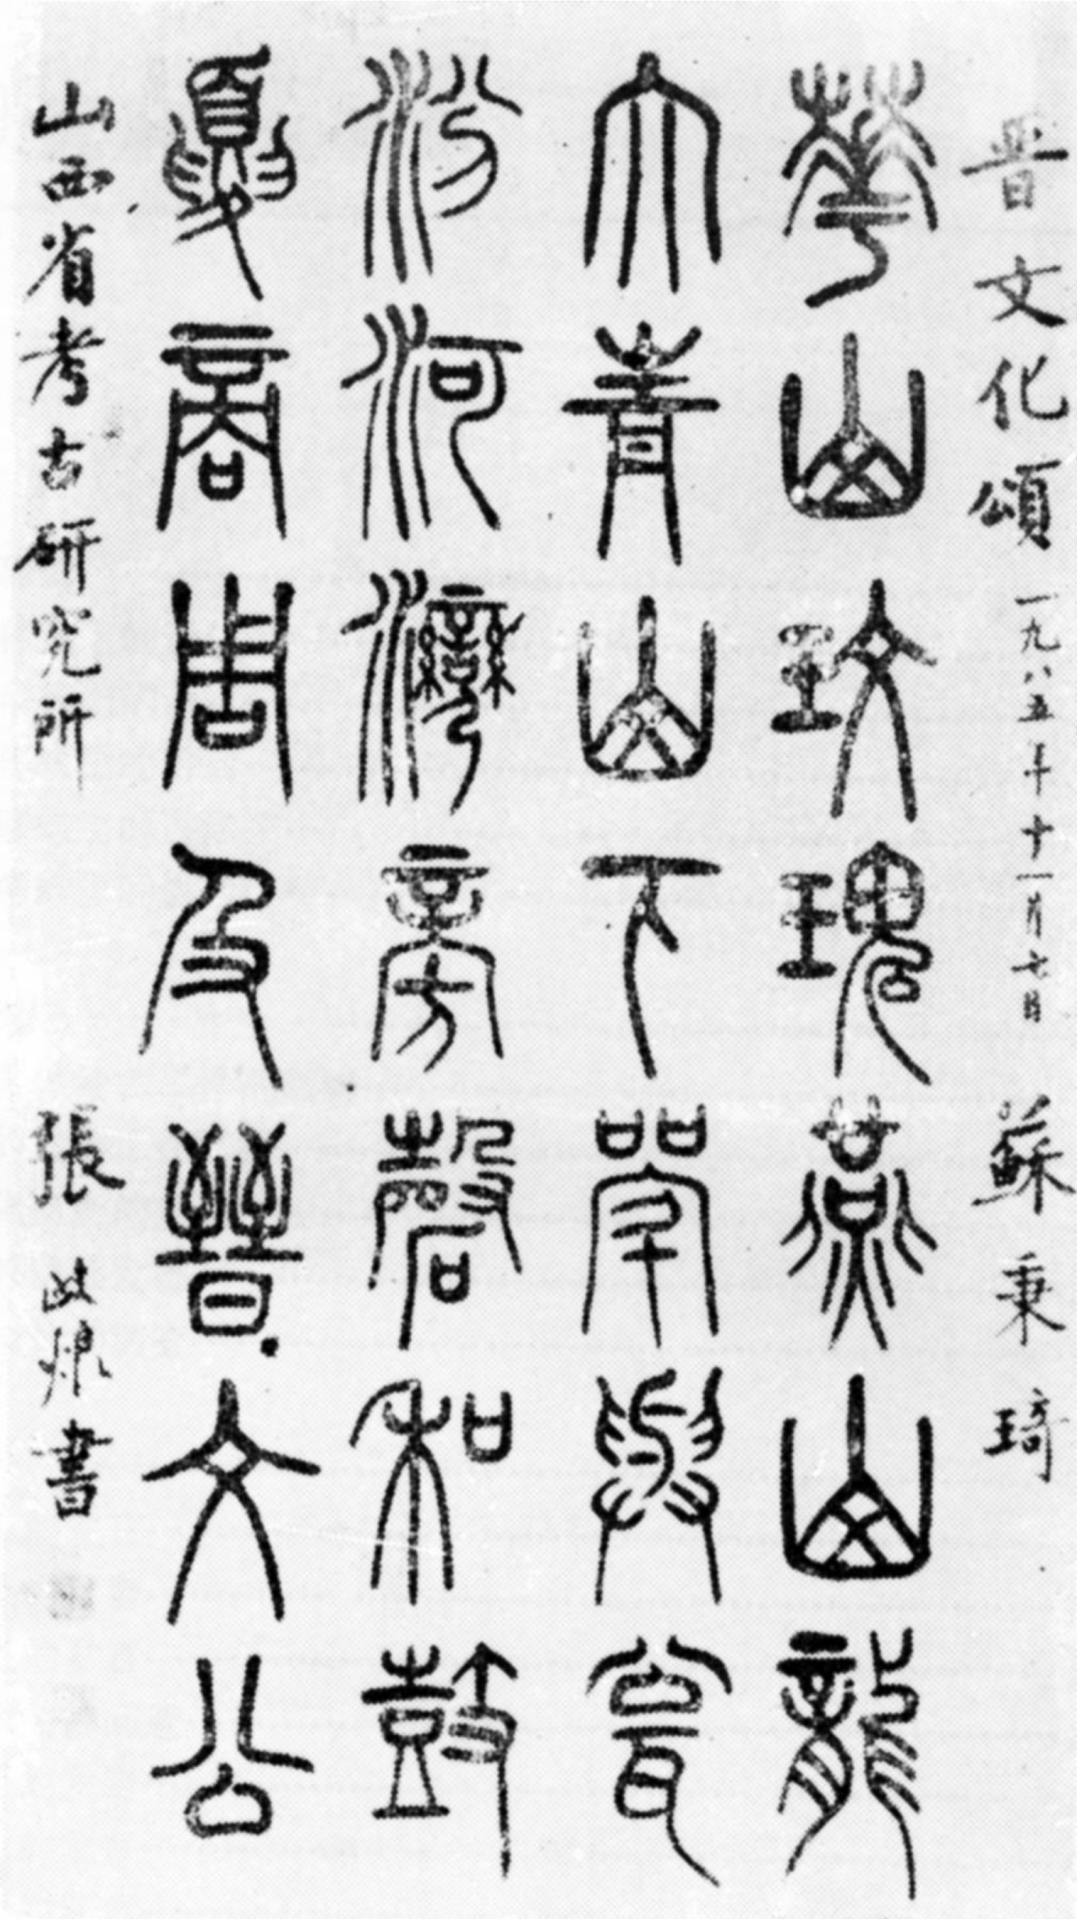 晋文化頌 一九八五年十一月七日 蘇秉琦
華山玫瑰燕山龍
大青山下斝與瓮
汾河灣旁磬和鼓
夏商周及晉文公
山西省考古研究所 張政烺書